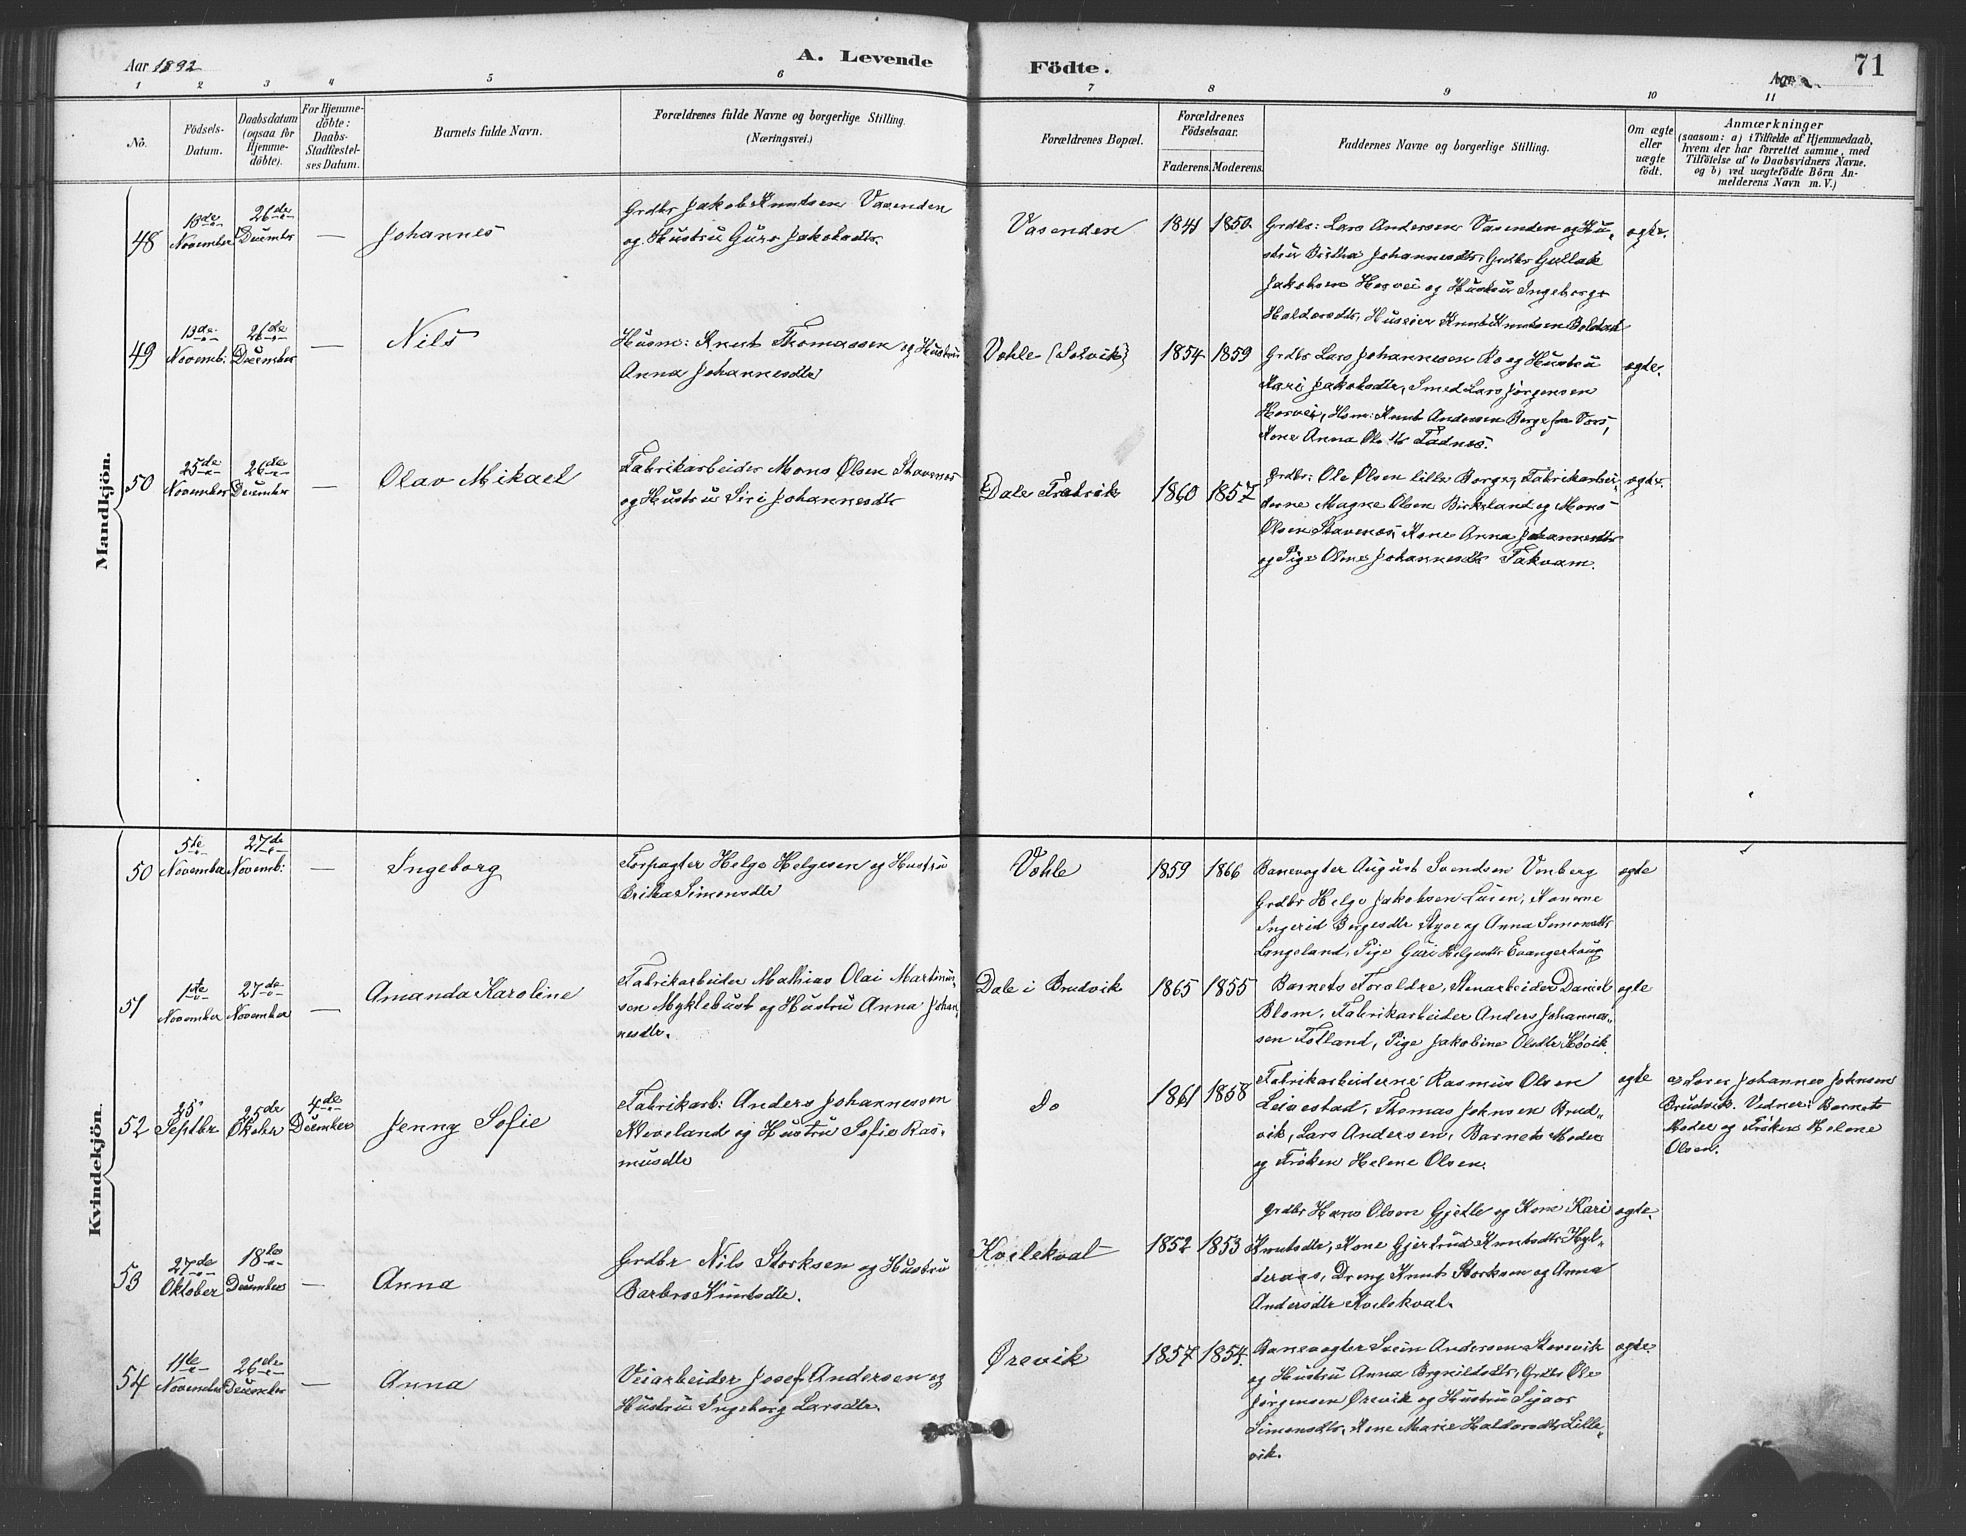 Aar 1892
A. Levende
Födte.
71
1 2 3 4 5 6 7 8 9 10 11
No.
Födsels-
Datum.
Daabsdatum
(ogsaa for
Hjemme-
döbte).
For Hjemme-
döbte:
Daabs-
Stadfæstel-
ses Datum.
Barnets fulde Navn.
Forældrenes fulde Navne og borgerlige Stilling.
(Næringsvei.)
Forældrenes Bopæl.
Forældrenes
Födselsaar.
Faderens. Moderens.
Faddernes Navne og borgerlige Stilling.
Om ægte
eller
uægte
födt.
Anmærkninger
(saasom: a) i Tilfælde af Hjemmedaab,
hvem der har forrettet samme, med
Tilföielse af to Daabsvidners Navne,
og b) ved uægtefödte Börn An-
melderens Navn m. V.)
Mandkjön.
48
13de
November
26de
December
—
Johannes
Grdbr Jakob Knutsen Vasenden
og Hustru Guro Jakobsdtr
Vasenden
1841 1850
Grdbr: Lars Andersen Vasenden og Hu-
stru Brita Johannesdtr, Grdbr Gullak
Jakobsen Horvei og Hustru Ingeborg
Haldorsdtr, Huseier Knut Knutsen Bolstad
ægte.
49
13de
Novemb:
26de
December
—
Nils
Husm: Knut Thomassen og Hustru
Anna Johannesdtr
Vohle (Solvik)
1854 1859
Grdbr Lars Johannesen Ro og Hustru
Kari Jakobsdtr, Smed Lars Jörgensen
Horvei, Hsm: Knut Andersen Berge fra Vors,
Kone Anna Olsdtr Fadnes.
ægte.
50
25de
November
26de
December
—
Olav Mikael
Fabrikarbeider Mons Olsen Stavenes
og Hustru Siri Johannesdtr
Dale
1860 1857
Grdbr: Ole Olsen lille Berge, Fabrikarbei-
derne Magne Olsen Birkeland og Mons
Olsen Stavenes, Kone Anna Johannesdtr
og Pige Oline Johannesdtr Takvam.
ægte.
Kvindekjön.
50
5te
November
27de
Novemb:
—
Ingeborg
Forpagter Helge Helgesen og Hustru
Erika Simonsdtr
Vohle
1859 1866
Banevogter August Svendsen Vonberg
Grdbr Helge Jakobsen Luren, Konerne
Ingerid Birgesdtr Styve og Anna Simonsdtr
Langeland, Pige Guri Helgesdtr Evangerhaug
ægte
51
1de
November
27de
November
—
Amanda Karoline
Fabrikarbeider Mathias Olai Martinus-
sen Myklebust og Hustru Anna Johan-
nesdtr.
Dale i Brudvik
1865 1855
Barnets Forældre, Stenarbeider Daniel
Blom, Fabrikarbeider Anders Johannes-
sen Fotland, Pige Jakobine Olsdtr Høvik
ægte
52
25
Septbr
25de
Oktobr
4de
December
Jenny Sofie
Fabrikarb: Anders Johannessen
Kleveland og Hustru Sofie Ras-
musdtr
Do
1861 1858
Fabrikarbeiderne Rasmus Olsen
Leivestad, Thomas Johnsen Brud-
vik, Lars Andersen, Barnets Moder
og Frøken Helene Olsen.
ægte
a) Lærer Johannes Johnsen
Brudvik. Vidner: Barnets
Moder og Frøken Helene
Olsen.
53
27de
Oktober
18de
December
—
Anna
Grdbr Nils Storksen og Hustru
Barbro Knutsdtr.
Kvilekval
1852 1853
Grdbr Hans Olsen Gjetle og Kone Kari
Knutsdtr, Kone Gjertrud Knutsdtr Hyl-
deraas, Dreng Knut Storksen og Anna
Andersdtr Kvilekval.
ægte.
54
11te
November
26de
December
—
Anna
Veiarbeider Josef Andersen og
Hustru Ingeborg Larsdtr.
Ørevik
1857 1854.
Banevogter Svein Andersen Storevik
og Hustru Anna Brynildsdtr, Grdbr Ole
Jörgensen Ørevik og Hustru Sigvor
Simonsdtr, Kone Marie Haldorsdtr Lille-
vik.
ægte.